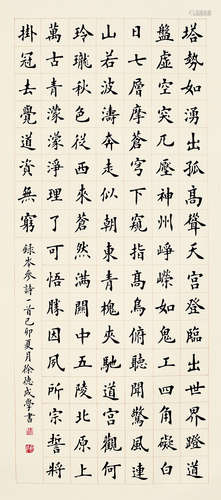 塔勢如湧出孤高聳天宮登臨出世界蹬道
盤虛空突兀壓神州崢嶸如鬼工四角礙白
日七層摩蒼穹下窺指高鳥俯聽聞驚風連
山若波濤奔走似朝東青槐夾馳道宮觀何
玲瓏秋色從西來蒼然滿關中五陵北原上
萬古青濛濛淨理了可悟勝因夙所宗誓將
掛冠去覺道資無窮 錄岑參詩一首己卯夏月徐德成學書